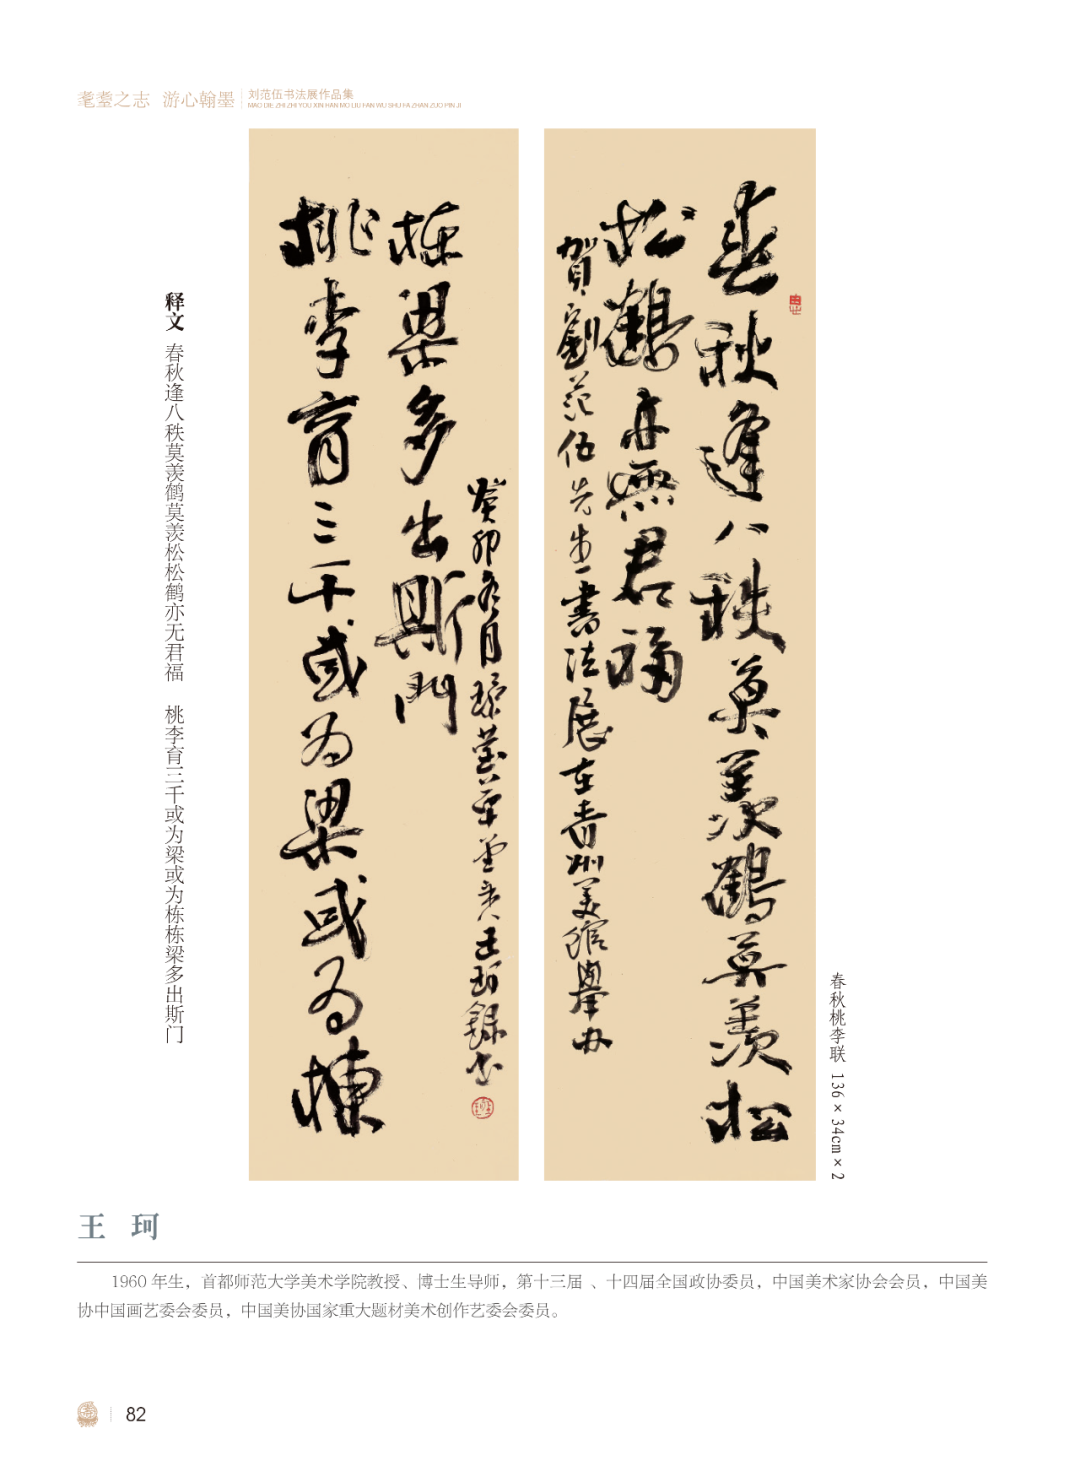 耄耋之志 游心翰墨
刘范伍书法展作品集
MAO DIE ZHI ZHI YOU XIN HAN MO LIU FAN WU SHU FA ZHAN ZUO PIN JI
春秋逢八秩莫羡鹤莫羡松
松鹤亦無君福
賀劉范伍先生書法展在青州美館舉办
桃李育三千或为梁或为棟
栋梁多出斯門
癸卯冬月
王珂録书
释文 春秋逢八秩莫羡鹤莫羡松松鹤亦无君福 桃李育三千或为梁或为栋栋梁多出斯门
春秋桃李联 136×34cm×2
王 珂
1960 年生，首都师范大学美术学院教授、博士生导师，第十三届 、十四届全国政协委员，中国美术家协会会员，中国美
协中国画艺委会委员，中国美协国家重大题材美术创作艺委会委员。
82